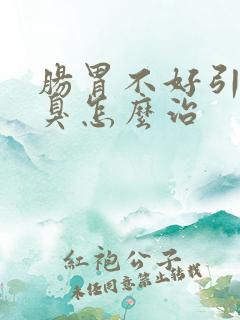 腸胃不好引
臭怎麼治
紅袍公子
未经同意禁止转载